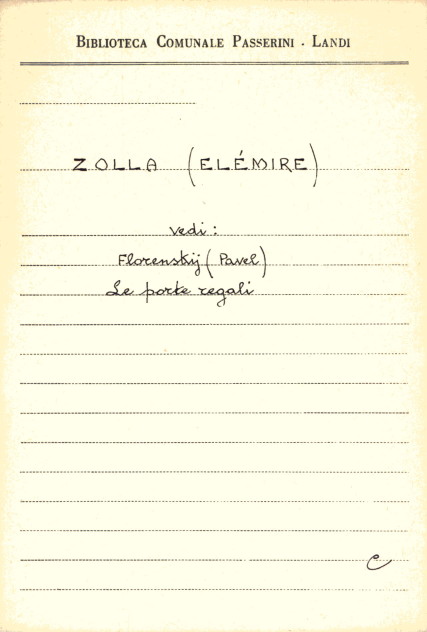 BIBLIOTECA COMUNALE PASSERINI - LANDI
ZOLLA (ELÉMIRE)
vedi:
Florenskij (Pavel)
Le porte regali
C